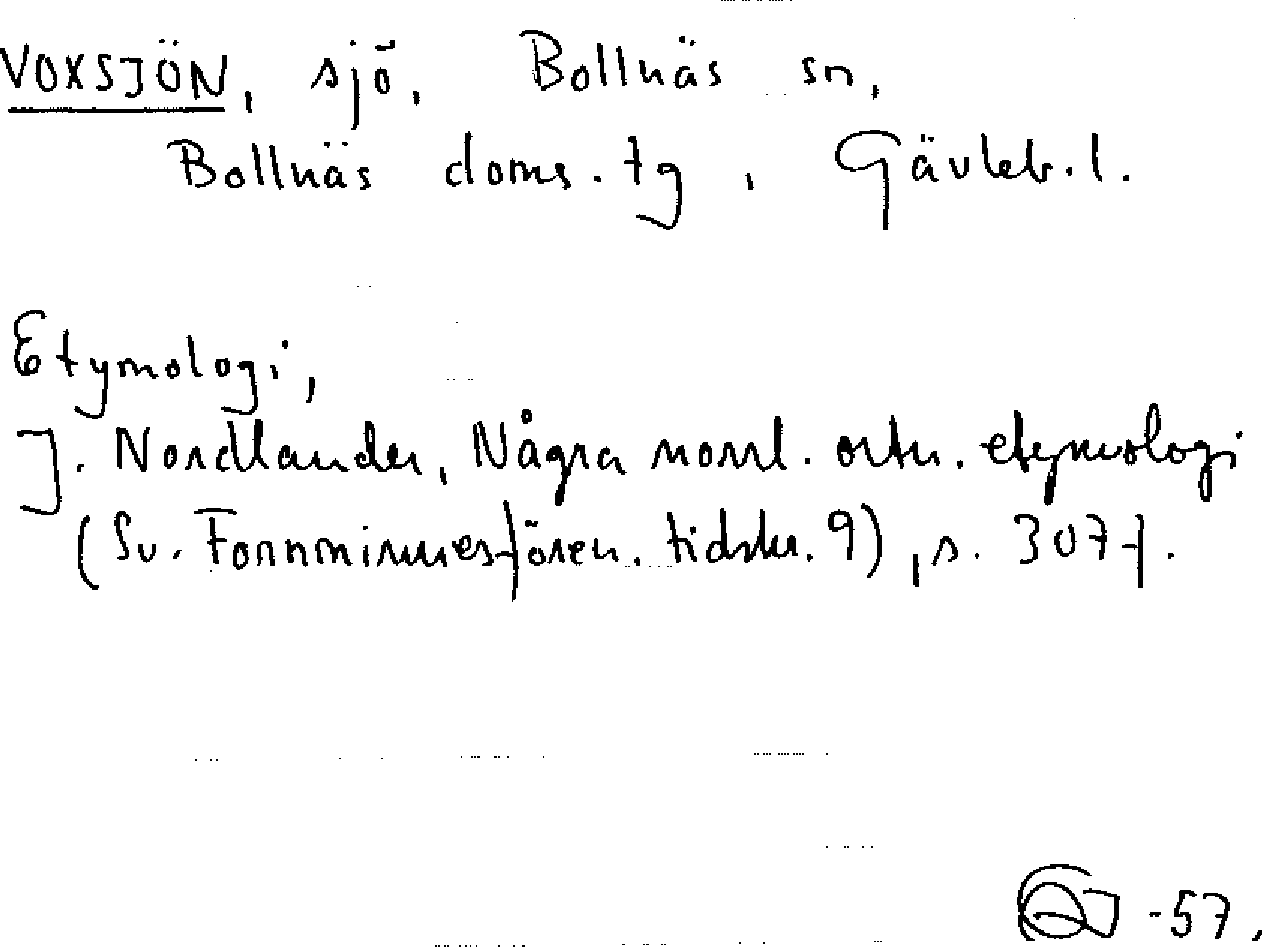 VOXSJÖN, sjö, Bollnäs sn,
Bollnäs doms. tg, Gävleb. l.
Etymologi,
J. Nordlander, Några norrl. ortn. etymologi
(Sv. Fornminnesfören. tidskr. 9), s. 307 f.
-57,